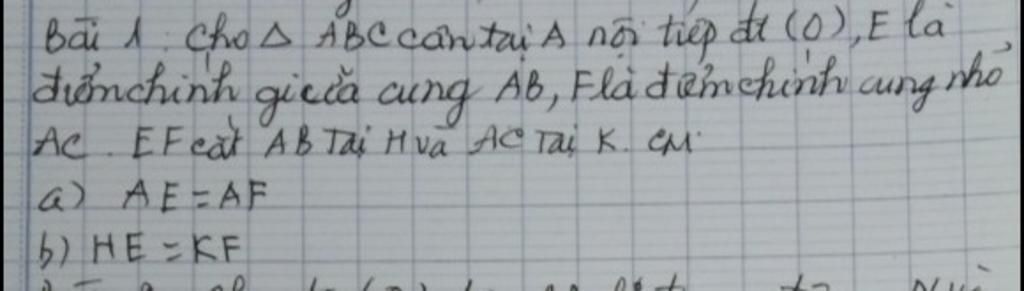 Bài 1: Cho Δ ABC cân tại A nội tiếp đt (O), E là
điểm chính giữa cung AB, F là điểm chính cung nhỏ
AC. EF cắt AB Tại H và AC Tại K. CM:
a) AE = AF
b) HE = KF